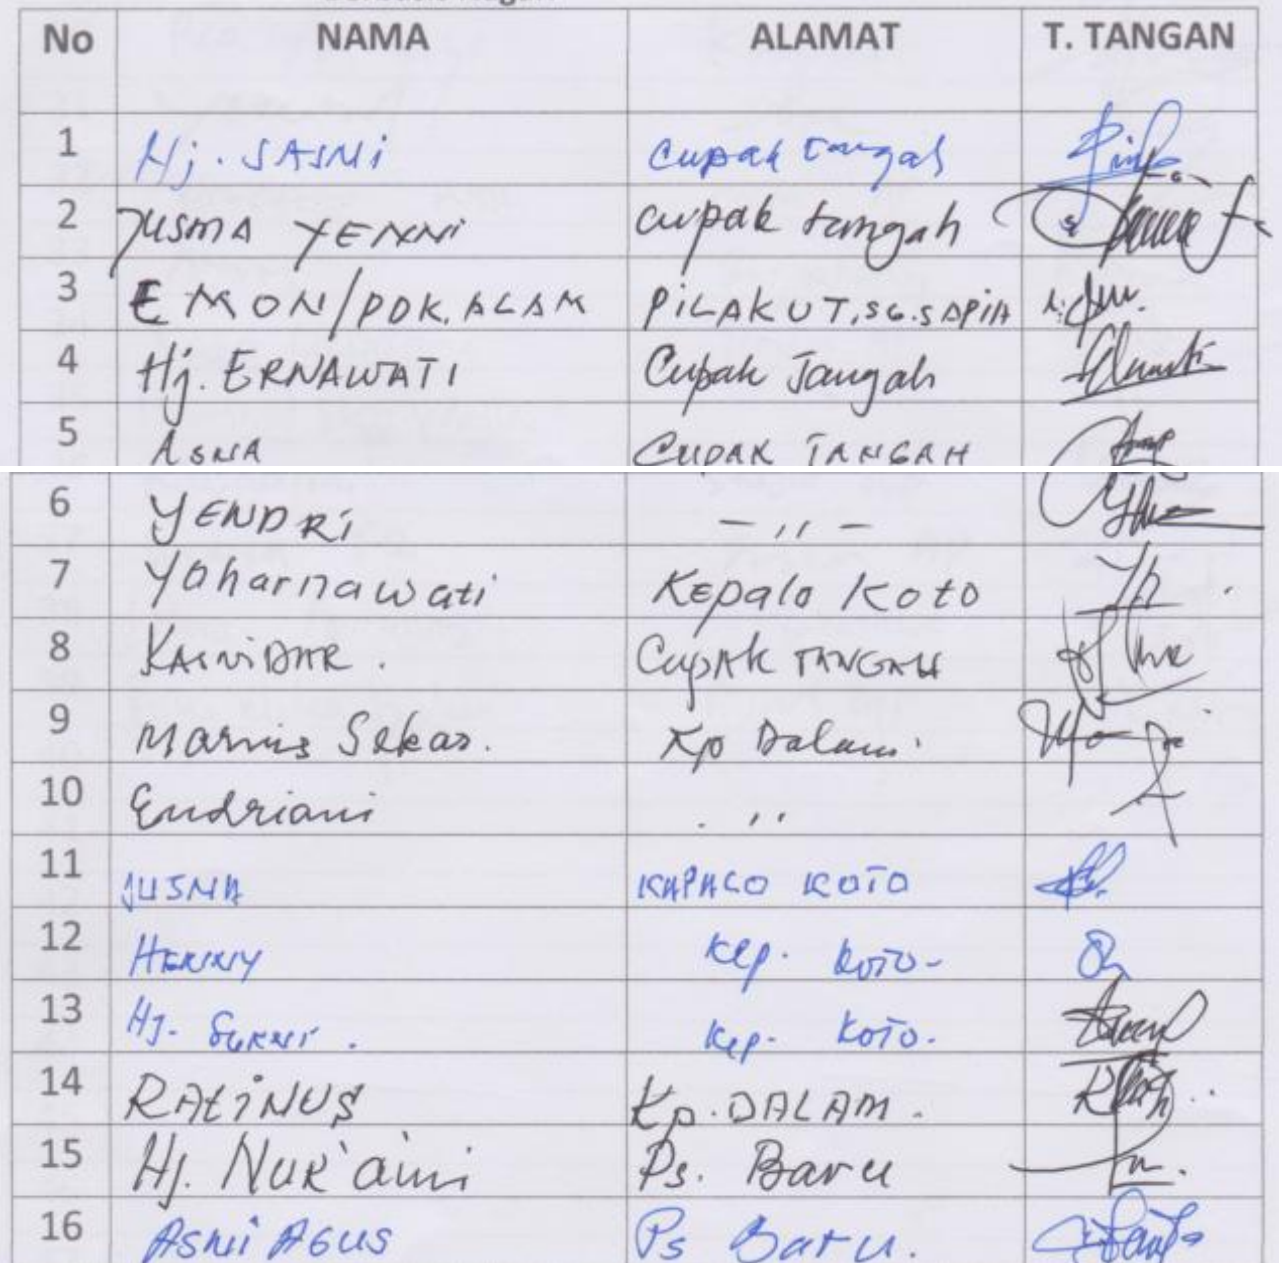 No NAMA ALAMAT T. TANGAN
1 Hj. SASMi Cupak tangah
2 JUSMA YENNi Cupak tangah
3 EMON/PDK. ALAM PiLAKUT, SG. SAPIH
4 Hj. ERNAWATI Cupak Tangah
5 ASNA CUPAK TANGAH
6 YENDRi - ,, -
7 Yoharnawati Kepalo Koto
8 KAiNiDAR . Cupak TANGAH
9 Marnis Sekar. Kp Dalam.
10 Endriani . ,,
11 JUSMA KAPALO KOTO
12 HENNY Kep. KOTO-
13 HJ. Kep. KOTO.
14 RATiNUS Kp. DALAM.
15 Hj. NUR'aini Ps. Baru
16 ASNi AGUS Ps Baru.